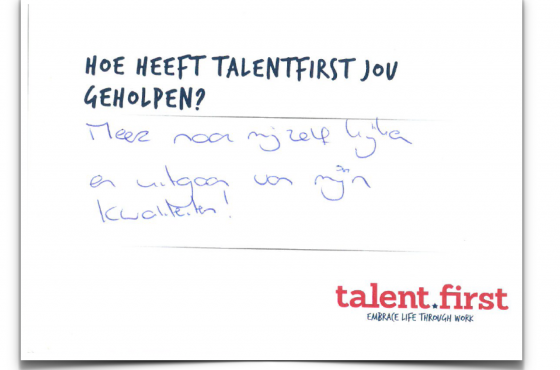 HOE HEEFT TALENTFIRST JOU
GEHOLPEN?
Meer naar mijzelf kijken
en uitgaan van mijn
kwaliteiten!
talent.first
EMBRACE LIFE THROUGH WORK